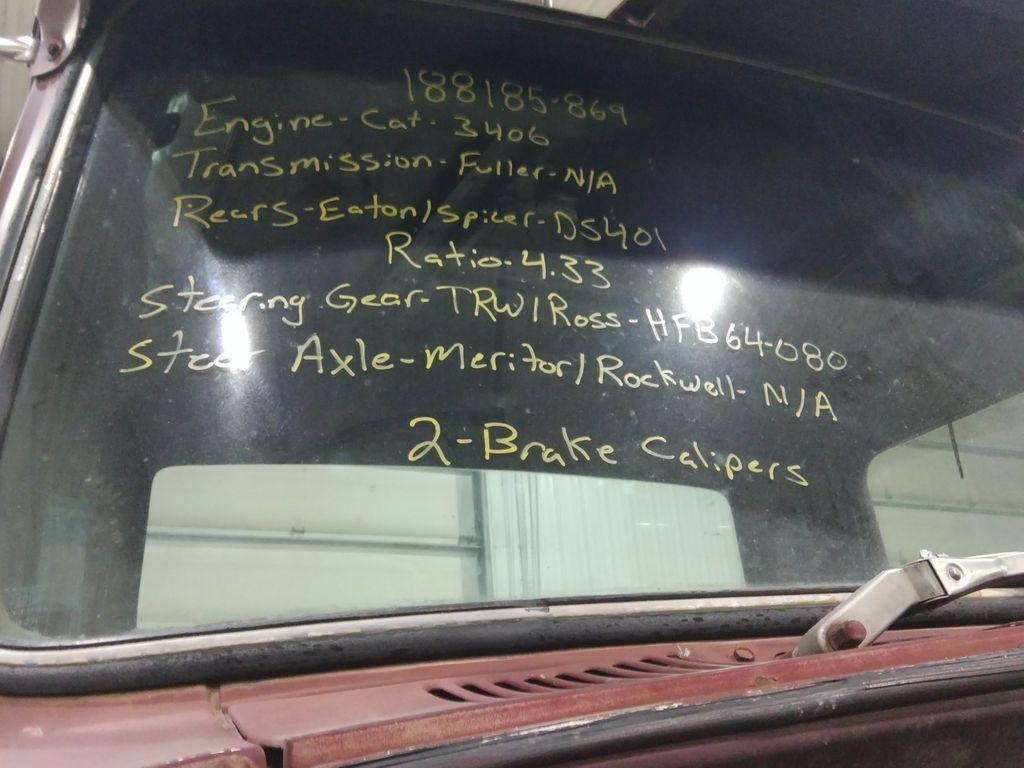 188185-869
Engine-Cat-3406
Transmission-Fuller-N/A
Rears-Eaton/Spicer-DS401
Ratio-4.33
Steering Gear-TRW/Ross-HFB64-080
Steer Axle-Meritor/Rockwell-N/A
2-Brake Calipers